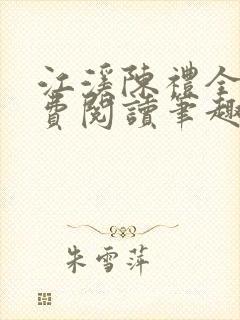 江溪陳禮全
費閱讀筆趣
朱雪萍